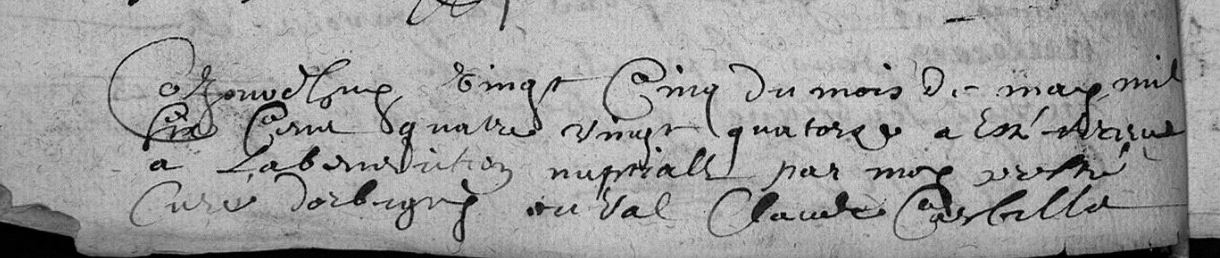 Cejourdhuy Vingt Cinq du mois de may mil
six Cens quatre vingt quatorze a Esté receue
a La benediction nuptialle par moy prestre
Curé dorbigny au Val Claude Corbelle